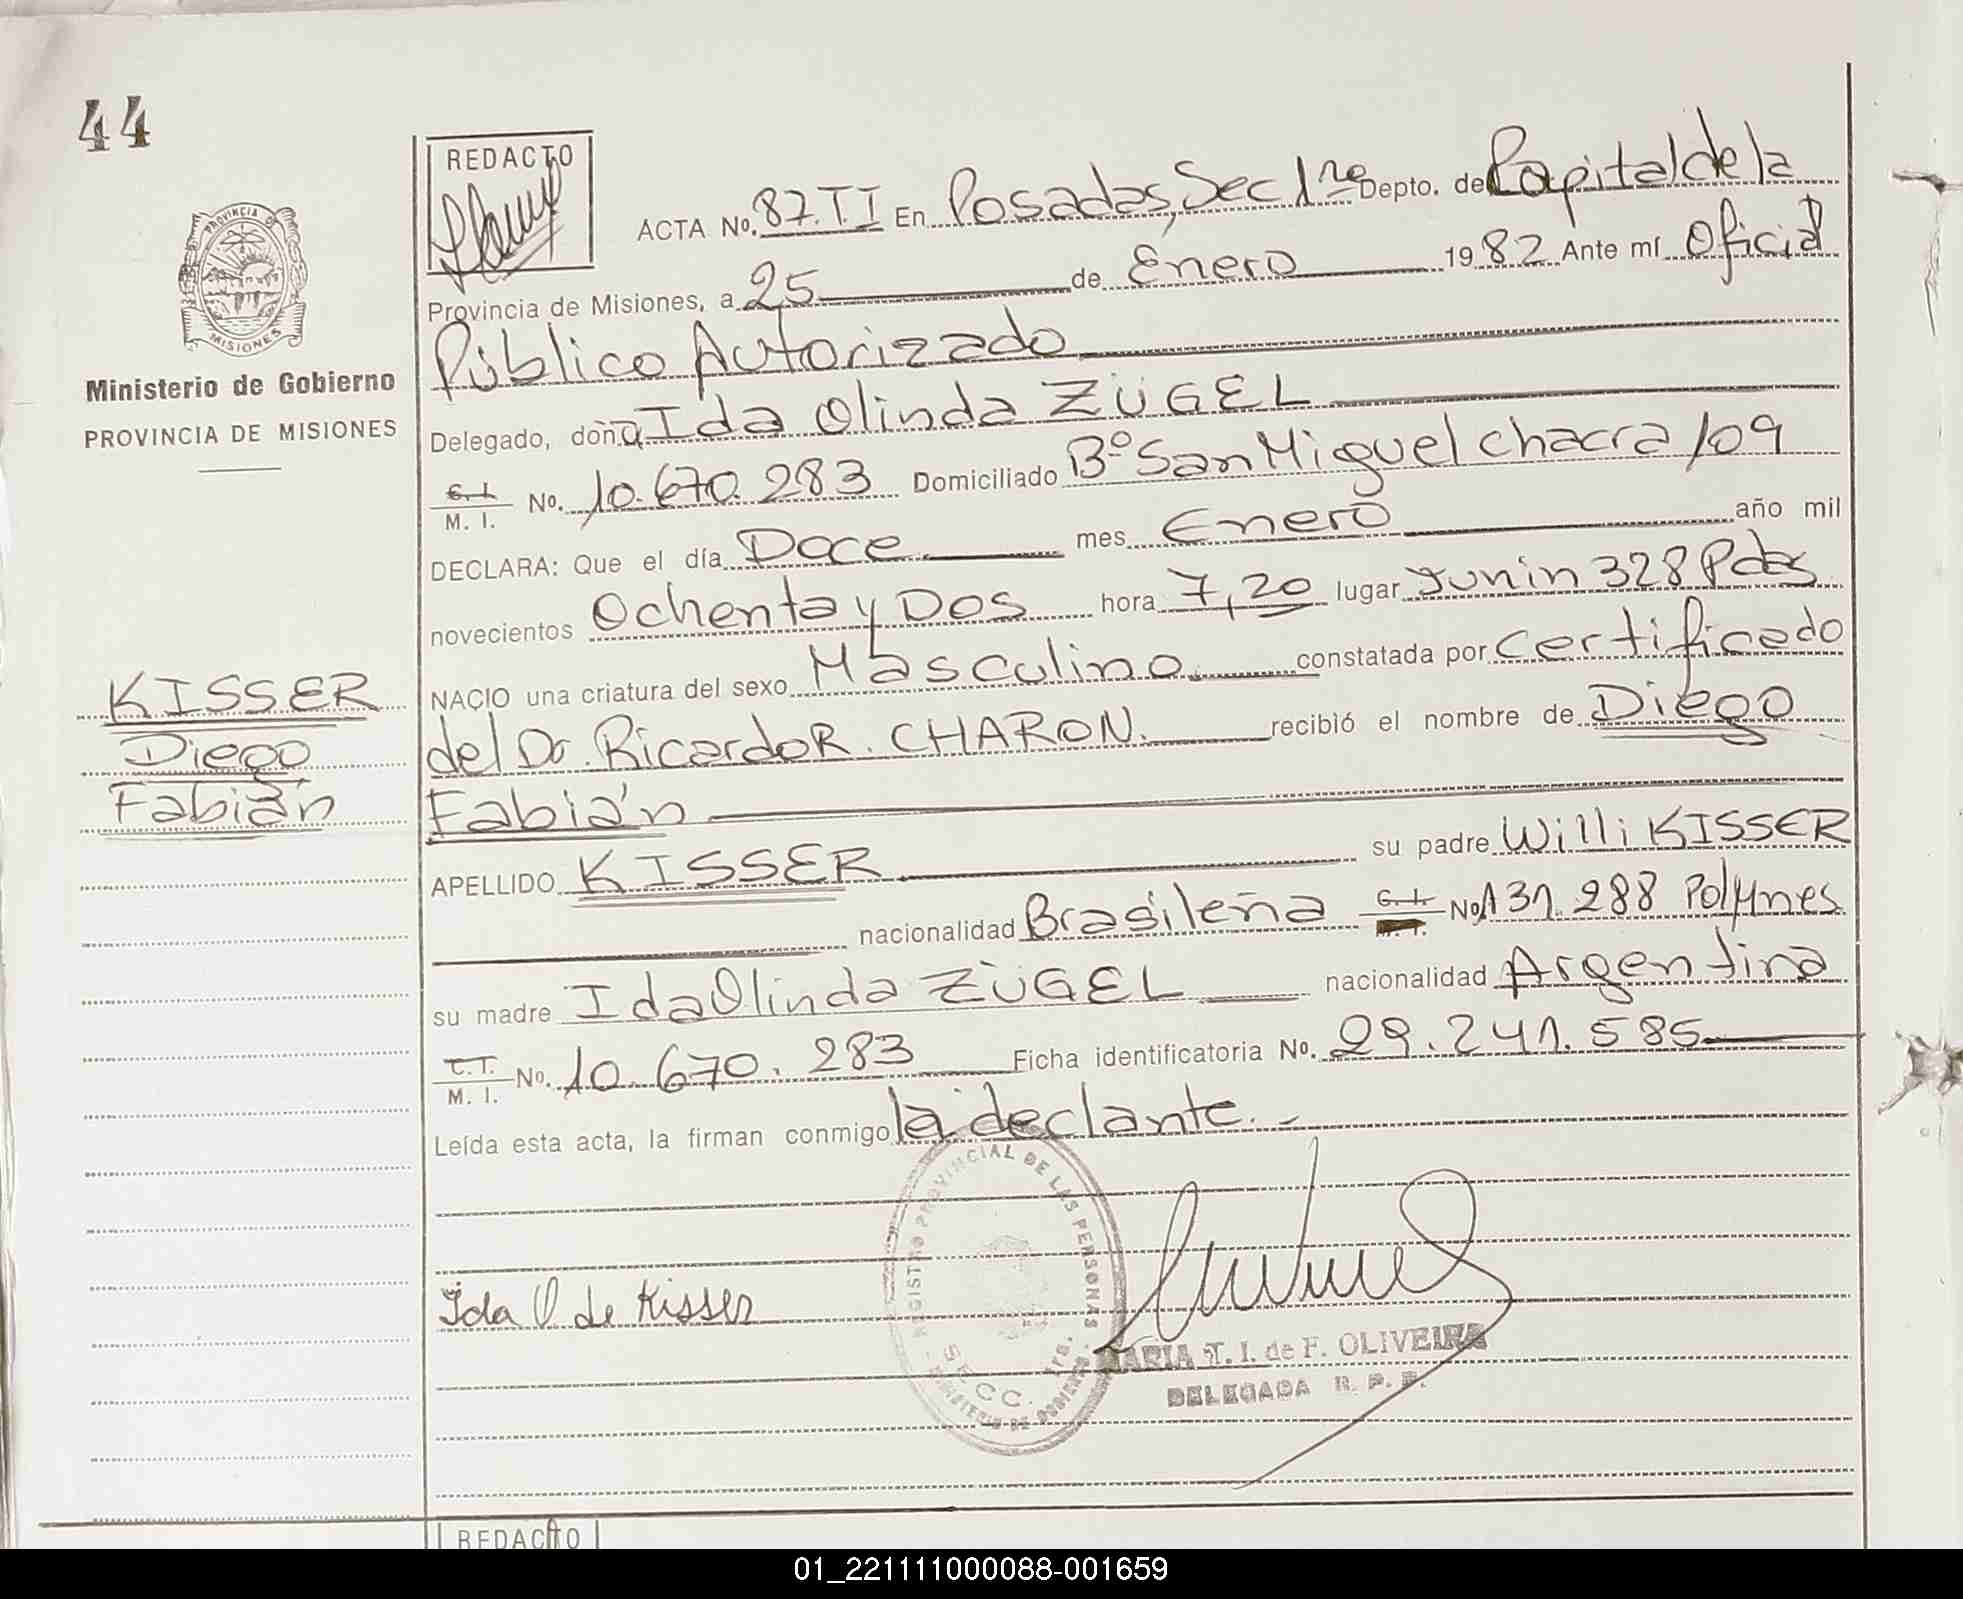 44
REDACTO
ACTA No. 87. T I En Posadas, Sec 1ra Depto. de Capital de la
Provincia de Misiones, a 25 de Enero 1982 Ante mí Oficial
Público Autorizado
Delegado, doña Ida Olinda ZÜGEL
C. I. / M. I. No. 10.670.283 Domiciliado Bº San Miguel chacra 109
DECLARA: Que el día Doce mes Enero año mil
novecientos Ochenta y Dos hora 7,20 lugar Junin 328 Pdas
NACIO una criatura del sexo Masculino. constatada por certificado
del Dr. Ricardo R. CHARON. recibió el nombre de Diego
Fabián
APELLIDO KISSER su padre Willi KISSER
nacionalidad Brasileña C. I. No. 131.288 Pol Mnes
su madre Ida Olinda ZÜGEL nacionalidad Argentina
C. I. / M. I. No. 10.670.283 Ficha identificatoria No. 29.241.585
Leída esta acta, la firman conmigo la declante.-
PROVINCIA DE
MISIONES
Ministerio de Gobierno
PROVINCIA DE MISIONES
KISSER
Diego
Fabián
REGISTRO PROVINCIAL DE LAS PERSONAS
MINISTERIO DE GOBIERNO
SECC.
Ida O de Kisser
MARIA T. I. de F. OLIVEIRA
DELEGADA R. P. P.
REDACTO
01_221111000088-001659